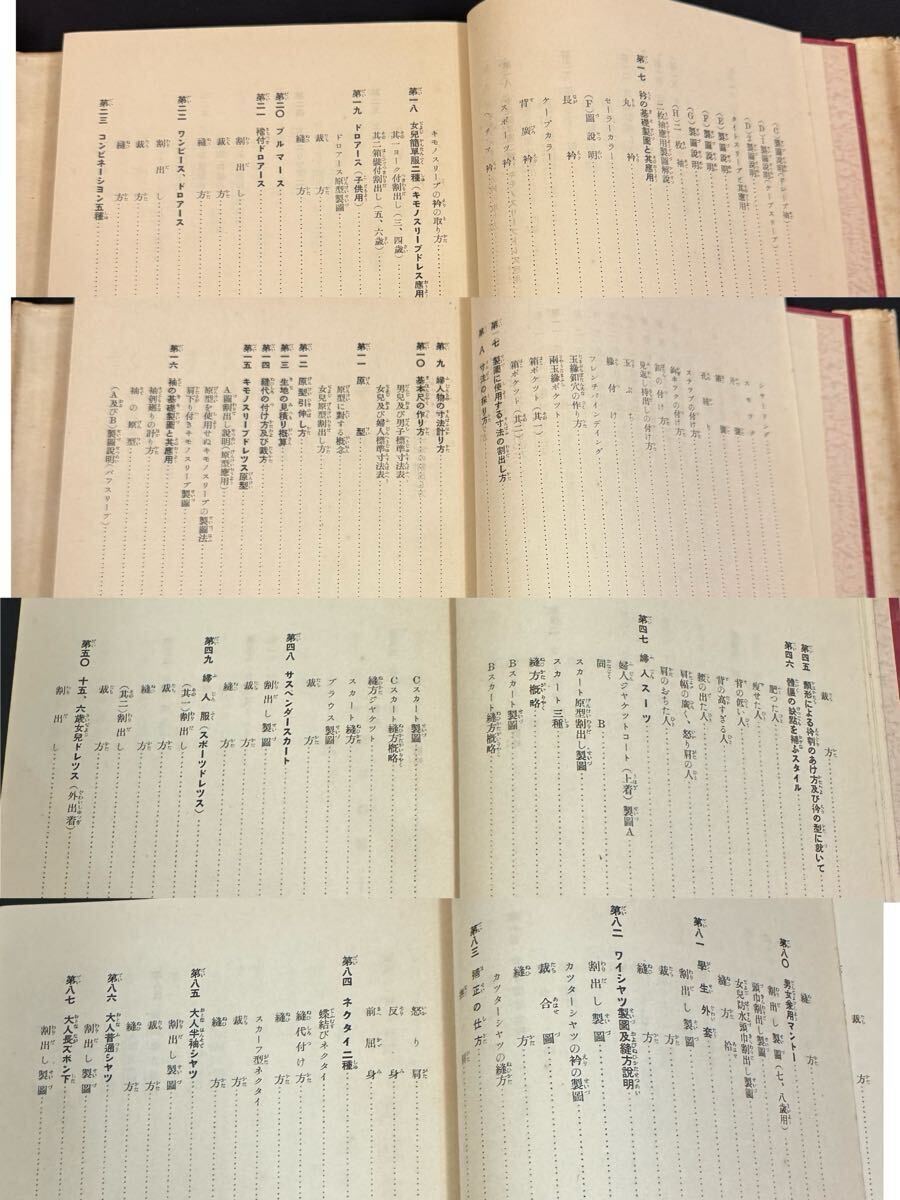 (C)製圖說明(チューリップ袖)
(D)1製圖說明(ケープスリーブ)
(D)2製圖說明
タイトスリーブと其應用
(E)製圖說明
(F)製圖說明
(G)製圖說明
(H)二枚袖
二枚袖應用製圖解說
第一七 衿の基礎製圖と其應用
丸衿
セーラーカラー
(F)圖說明
長衿
ケープカラー
背廣衿
スポーツ衿
キモノスリーブの衿の取り方
第一八 女兒簡單服二種(キモノスリーブドレス應用)
其一ヨーク付割出し(三、四歲)
其二箱襞付割出し(五、六歲)
第一九 ドロアース(子供用)
ドロアース原型製圖
裁方
縫方
第二〇 ブルマース
第二一 襠付ドロアース
割出し
裁方
縫方
第二二 ワンピース、ドロアース
割出し
縫方
第二三 コンビネーション五種
シャーリング
スモック
ステップの付け方
ホックの付け方
見返し持出しの付け方
玉ぶち
緣付け
フレンチバインディング
玉緣釦穴の作り方
兩玉緣ポケット
箱ポケット(其一)
箱ポケット(其二)
第一七 製圖に使用する寸法の割出し方
第八 寸法の採り方
第九 婦人物の寸法計り方
第一〇 基本型の作り方
男兒及び男子標準寸法表
女兒及び婦人標準寸法表
第一一 原型
原型に對する概念
女兒原型割出し方
第一二 原型引伸し方
第一三 生地の見積り概算
第一四 縫代の付け方及び裁方
第一五 キモノスリーブドレツス原型
A圖割出し說明(原型應用)
原型を使用せぬキモノスリーブの製圖法
肩下り付きキモノスリーブ製圖
第一六 袖の基礎製圖と其應用
袖刳廻りの計り方
袖の原型
(A及びB製圖說明(パフスリーブ)
裁方
第四五 顏形による衿刳のあけ方及び衿の型に就いて
第四六 體軀の缺點を補ふスタイル
肥つた人
瘦せた人
背の低い人
背の高すぎる人
腰の出た人
肩幅の廣く、怒り肩の人
肩のおちた人
第四七 婦人スーツ
婦人ジャケツトコート(上着)製圖A
同 B
スカート原型割出し製圖
スカート三種
縫方概略
Bスカート製圖
Bスカート縫方概略
Cスカート製圖
Cスカート縫方概略
縫方ジャケツト
スカート縫方
ブラウス製圖
第四八 サスペンダースカート
割出し製圖
裁方
縫方
第四九 婦人服(スポーツドレツス)
(其一)割出し
裁方
縫方
(其二)割出し
裁方
縫方
第五〇 十五、六歲女兒ドレツス(外出着)
割出し
裁方
縫方
第八〇 男女兒用マントー
割出し製圖(七、八歲用)
頭巾割出し製圖
女兒防水頭巾割出し製圖
縫方 袷
第八一 學生外套
割出し製圖
裁方
縫方
第八二 ワイシャツ製圖及縫方說明
割出し製圖
カツターシャツの衿の製圖
裁合
縫方
カツターシャツの縫方
第八三 補正の仕方
怒り肩
反り身
前屈身
第八四 ネクタイ二種
蝶結びネクタイ
縫代付け
縫方
スカーフ型ネクタイ
裁方
縫方
第八五 大人半袖シャツ
割出し製圖
裁方
縫方
第八六 大人普通シャツ
割出し製圖
第八七 大人長ズボン下
割出し製圖